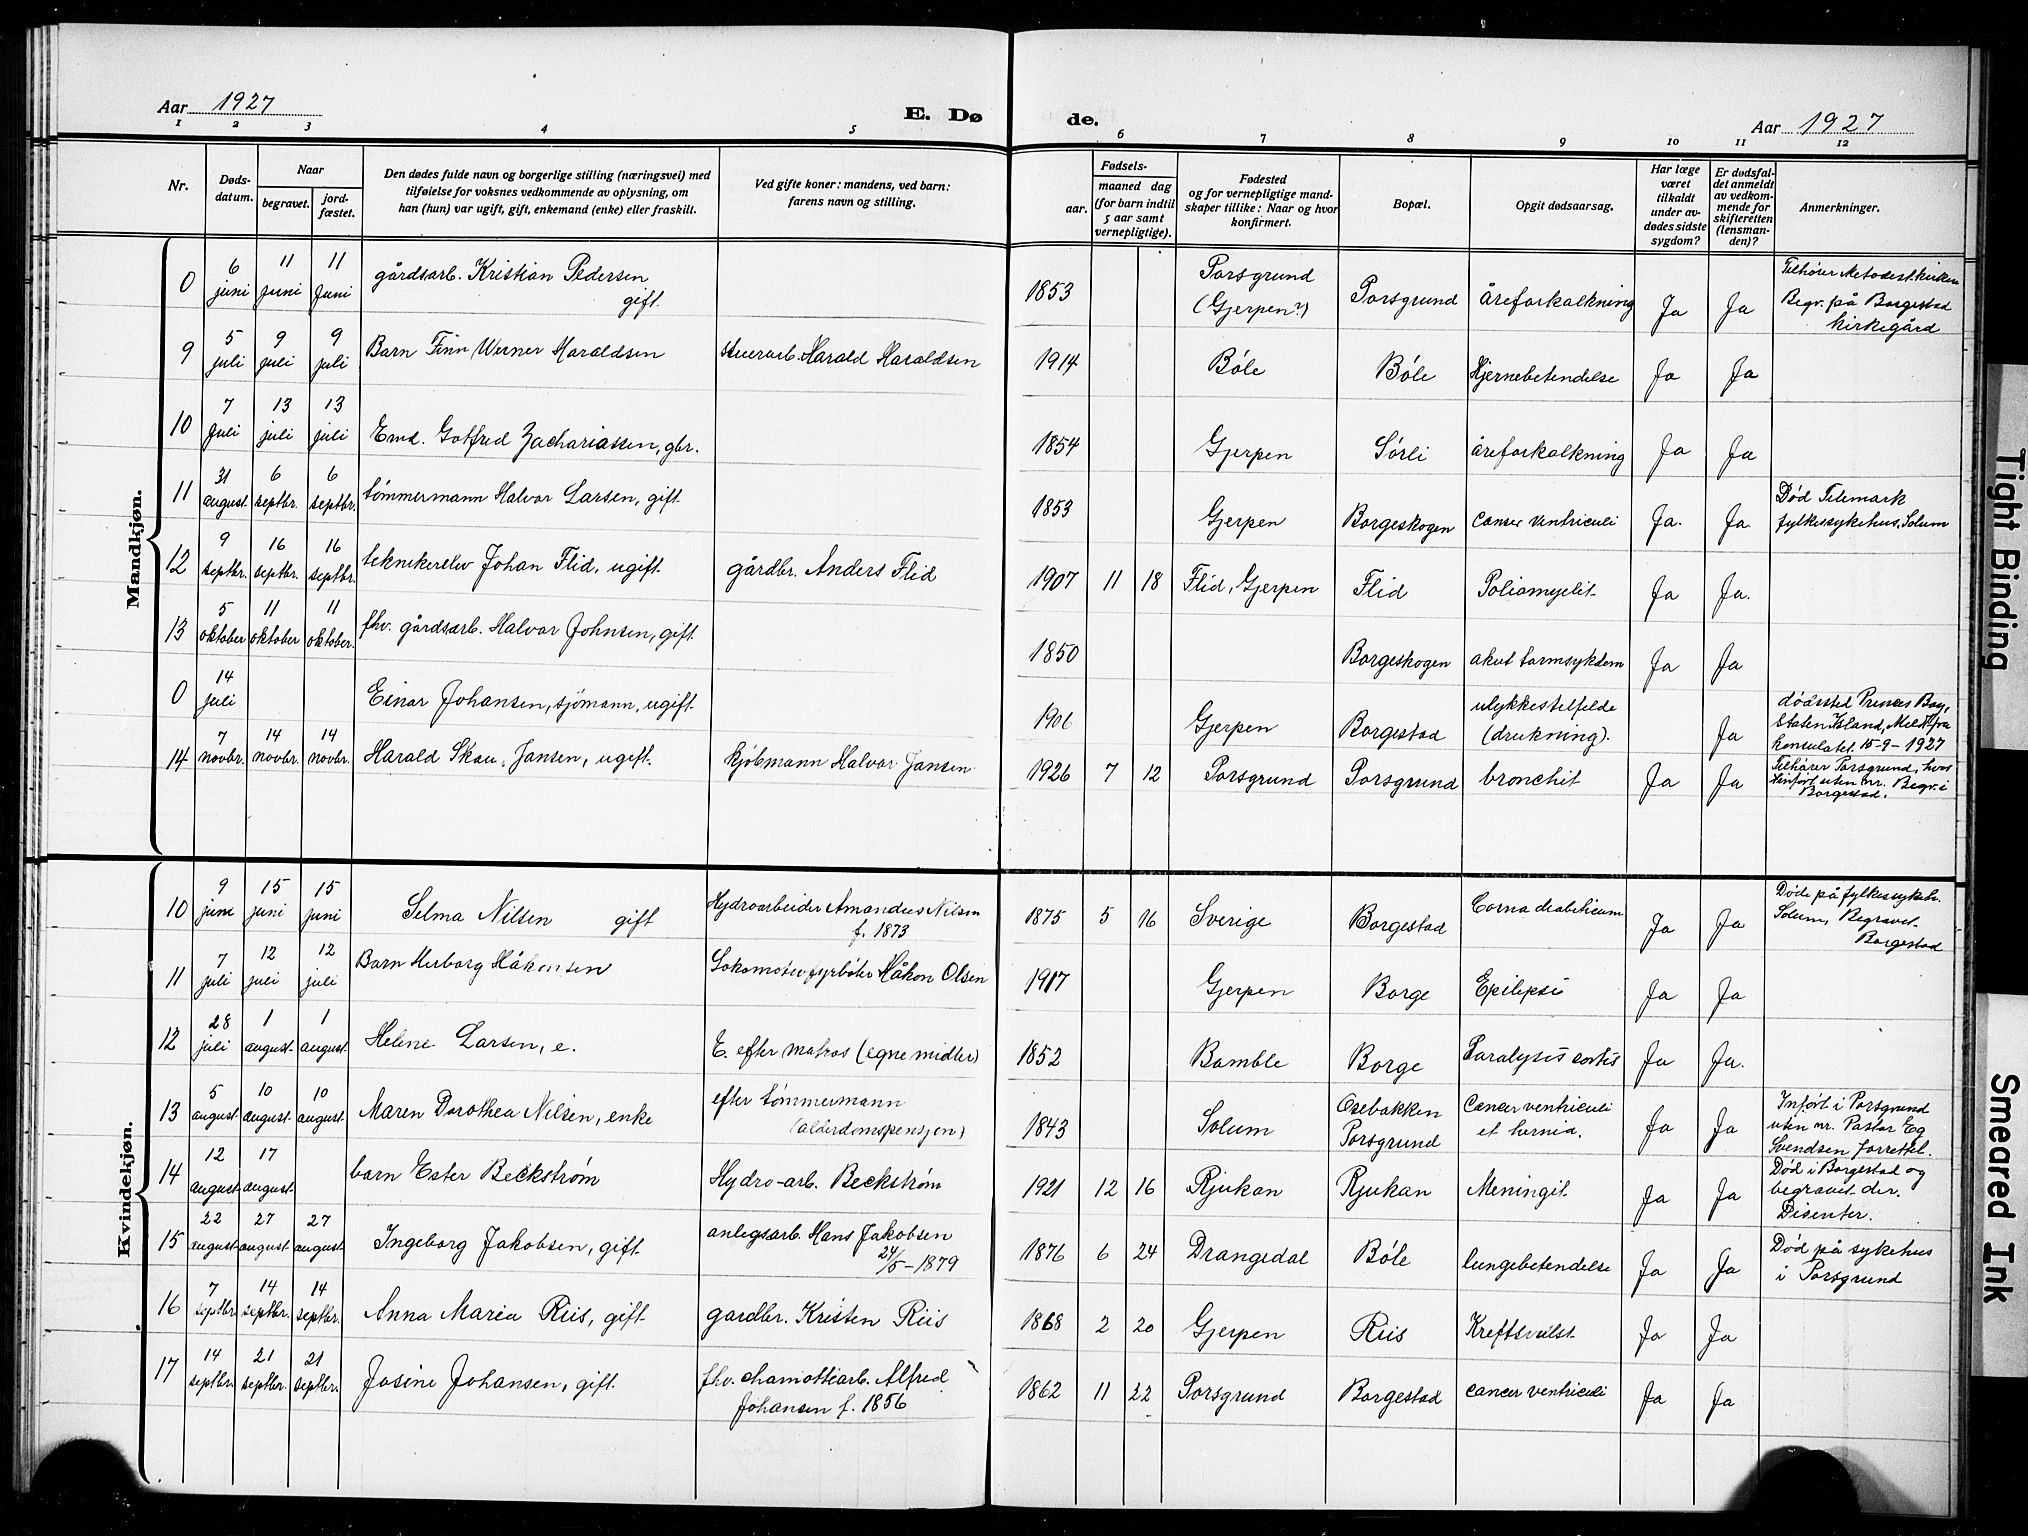 Aar 1927
E. Døde.
Aar 1927
1 2 3 4 5 6 7 8 9 10 11 12
Nr.
Døds-
datum.
Naar
begravet.
jord-
fæstet.
Den dødes fulde navn og borgerlige stilling (næringsvei) med
tilføielse for voksnes vedkommende av oplysning, om
han (hun) var ugift, gift, enkemand (enke) eller fraskilt.
Ved gifte koner: mandens, ved barn:
farens navn og stilling.
Fødsels-
aar.
maaned dag
(for barn indtil
5 aar samt
vernepligtige).
Fødested
og for vernepligtige mand-
skaper tillike: Naar og hvor
konfirmert.
Bopæl.
Opgit dødsaarsag.
Har læge
været
tilkaldt
under av-
dødes sidste
sygdom?
Er dødsfal-
det anmeldt
av vedkom-
mende for
skifteretten
(lensman-
den)?
Anmerkninger.
Mandkjøn.
0 6 juni 11 juni 11 juni gårdsarb. Kristian Pedersen gift 1853 Porsgrund (Gjerpen?) Porsgrund åreforkalkning Ja Ja Tilhører Metodistkirken Begr. på Borgestad kirkegård
9 5 juli 9 juli 9 juli Barn Finn Werner Haraldsen Harald Haraldsen 1914 Bøle Bøle Hjernebetendelse Ja Ja
10 7 juli 13 juli 13 juli Emd. Gotfred Zachariassen, gbr. 1854 Gjerpen Sørli åreforkalkning Ja Ja
11 31 august 6 septbr. 6 septbr. tømmermann Halvor Larsen, gift 1853 Gjerpen Borgeskogen Canser ventriculi Ja. Ja Død Telemark fylkessykehus, Solum
12 9 septbr. 16 septbr. 16 septbr. teknikerelev Johan Flid, ugift gårdbr. Anders Flid 1907 11 18 Flid, Gjerpen Flid Poliomyelit Ja Ja.
13 5 oktober 11 oktober 11 oktober. fhv. gårdsarb. Halvor Johnsen, gift 1850 Borgeskogen akut tarmsykdom Ja Ja
0 14 juli Einar Johansen, sjømann, ugift 1906 Gjerpen Borgestad ulykkestilfelde (drukning). Ja dødssted Princes Bay, Staten Island, Meldt fra konsulatet 15-9-1927
14 7 novbr. 14 novbr. 14 novbr. Harald Skau Jansen, ugift. kjøbmann Halvor Jansen 1926 7 12 Porsgrund Porsgrund bronchit Ja Ja Tilhører Porsgrund, hvor innført uten nr. Begr. i Borgestad.
Kvindekjøn.
10 9 juni 15 juni 15 juni Selma Nilsen gift Hydroarbeider Amandus Nilsen f. 1873 1875 5 16 Sverige Borgestad Coma diabeticum Ja Ja Døde på fylkessykeh. Solum, Begravet Borgestad
11 7 juli 12 juli 12 juli Barn Herborg Håkonsen Lokomotivfyrbøter Håkon Olsen 1917 Gjerpen Borge Epilepsi Ja Ja
12 28 juli 1 august 1 august Helene Larsen, e. E. efter matros (egne midler) 1852 Bamble Borge Paralysis cortis Ja Ja.
13 5 august 10 august 10 august Maren Dorothea Nilsen, enke efter tømmermann (alderdomspensjon) 1843 Solum Osebakken Porsgrund Cancer ventriculi et hernia. Ja Ja Innført i Porsgrund uten nr. Pastor Eg Svendsen forrettet.
14 12 august 17 august barn Ester Beckstrøm Hydro-arb. Beckstrøm 1921 12 16 Rjukan Rjukan Meningit Ja Ja Død i Borgestad og begravet der. Disenter.
15 22 august 27 august 27 august Ingeborg Jakobsen, gift anlegsarb. Hans Jakobsen 24/5-1879 1876 6 24 Drangedal Bøle lungebetendelse Ja Ja Død på sykehus i Porsgrund
16 7 septbr. 14 septbr. 14 septbr. Anna Maria Riis, gift gardbr. Kristen Riis 1868 2 20 Gjerpen Riis Kreftsvulst Ja Ja
17 14 septbr. 21 septbr. 21 septbr. Josine Johansen, gift fhv. chamottearb. Alfred Johansen f. 1856 1862 11 22 Porsgrund Borgestad Cancer ventriculi Ja Ja
Tight Binding
Smeared Ink